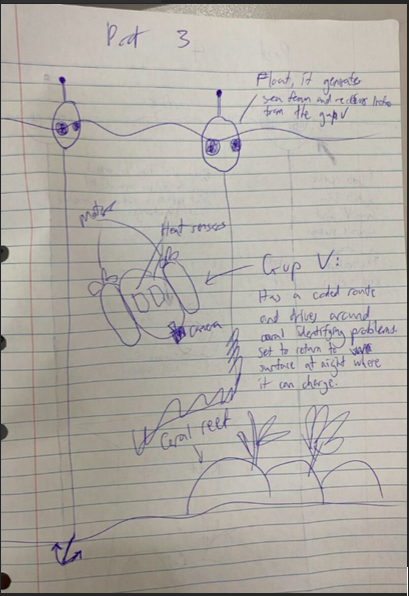 Part 3
Float, it generates
and receives
from the gup V
Motor
Heat sensors
Gup V:
Has a coded route
and drives around
coral identifying problems
set to return to
surface at night where
it can charge.
camera
Coral reef